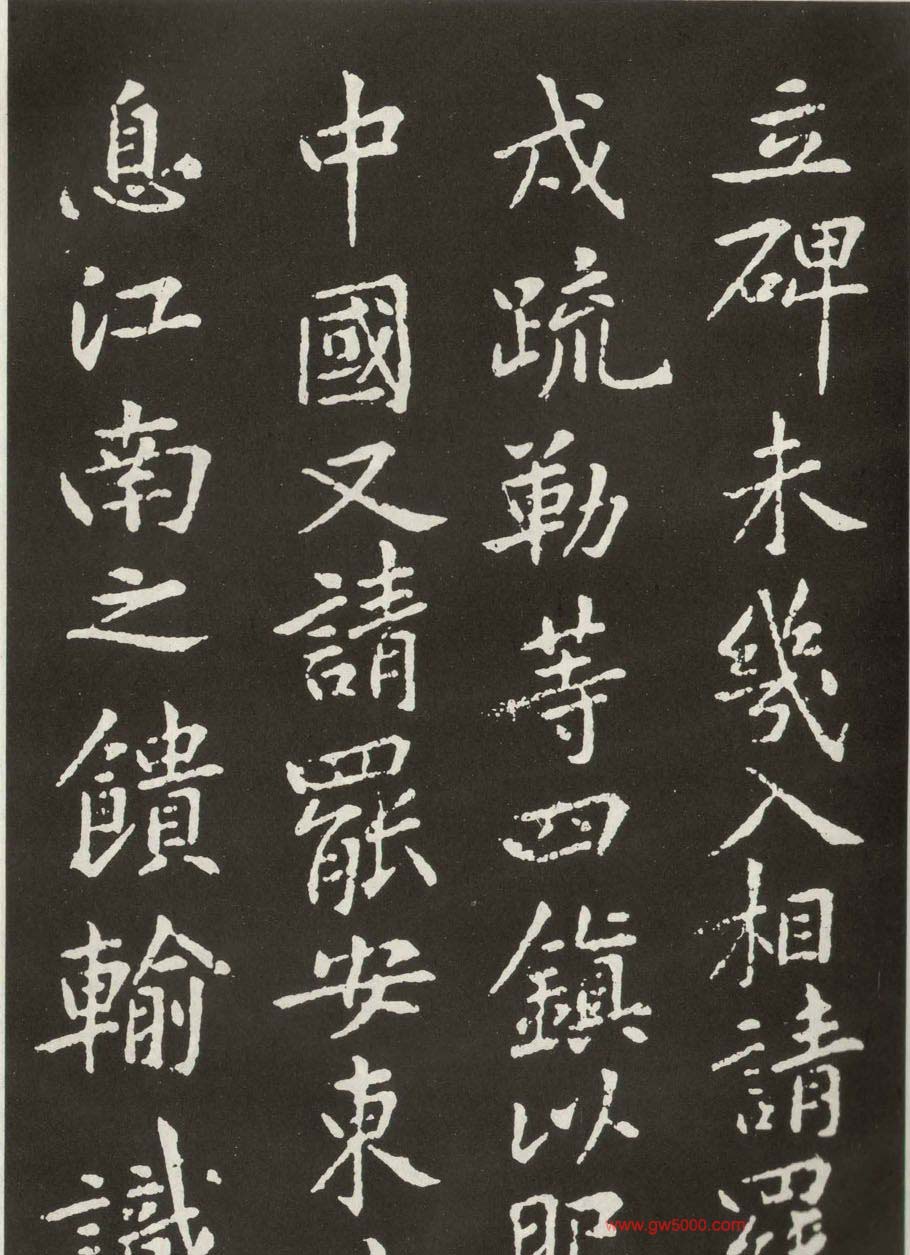 立碑未幾入相請罷
戍疏勒等四鎮以肥
中國又請罷安東
息江南之饋輸識
www.gw5000.com